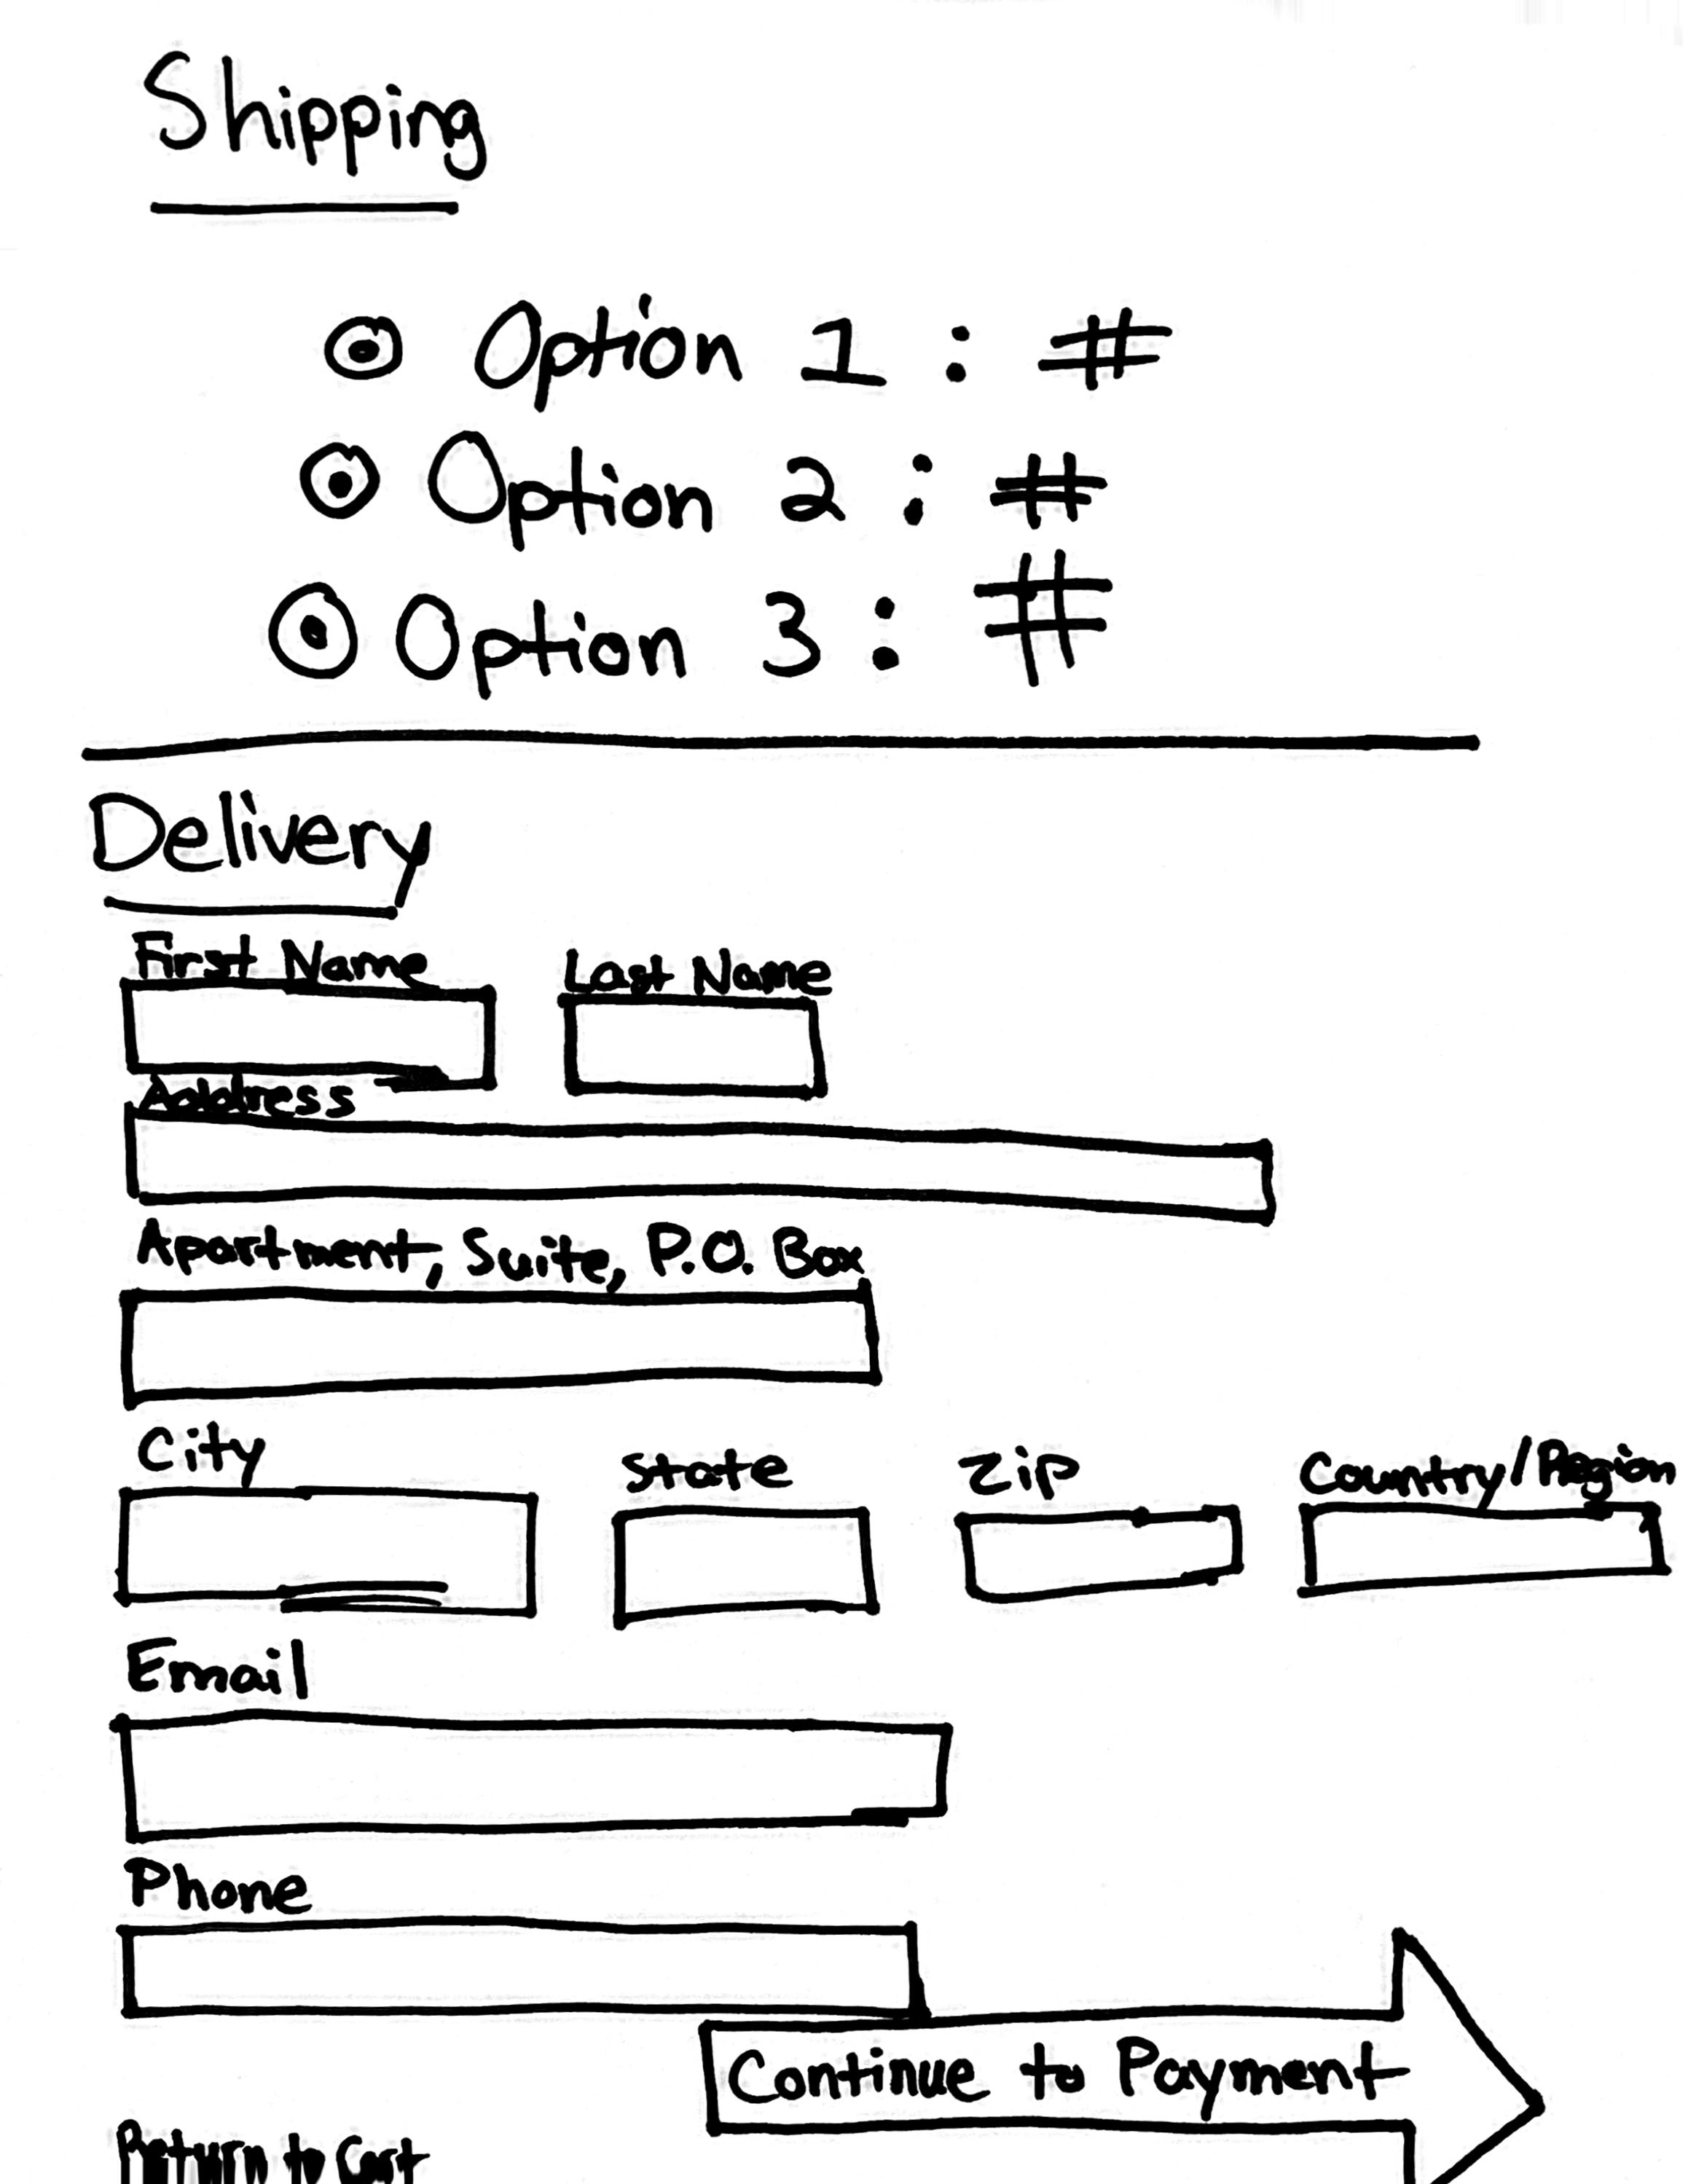 Shipping
Option 1 : #
Option 2 : #
Option 3 : #
Delivery
First Name Last Name
Address
Apartment, Suite, P.O. Box
City State Zip Country/Region
Email
Phone
Continue to Payment
Return to Cart